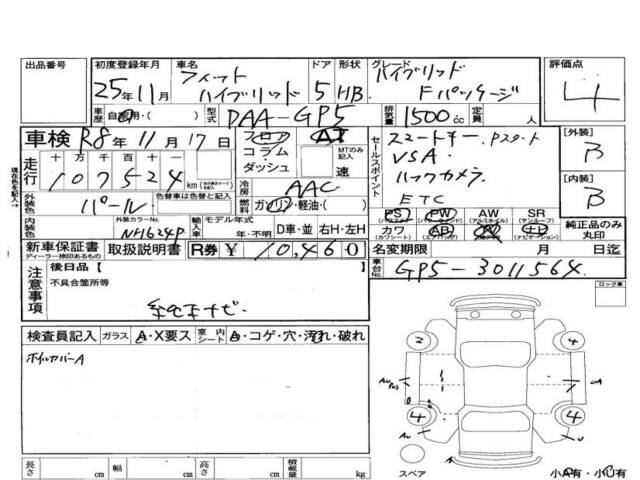 出品番号
初度登録年月
25年11月
車名
フィット
ハイブリッド
ドア
5
形状
HB
グレード
ハイブリッド
Fパッケージ
評価点
4
車歴 自家用・( )
型式 DAA-GP5
排気量 1500cc
定員 人
車検 R8年11月17日
フロア
コラム
ダッシュ
AT
MTのみ記入
速
セールスポイント
スマートキー.Pスタート
VSA.
バックカメラ
ETC
[外装]
B
[内装]
B
走行
十万 万 千 百 十 一
107524 km
冷房 AAC
燃料 ガソリン・軽油・( )
外装色 パール
色替車は色替前色
内装色
外装カラーNo.
NH624P
輸入車 モデル年式
年・不明
D車・並 右H・左H
PS PW AW SR
(パワーウィンドウ) (アルミホイル) (サンルーフ)
カワ AB
(カワシート) (エアバック) (ナビゲーション)
純正品のみ
丸印
新車保証書 取扱説明書 R券 ¥ 10,460
ディーラー捺印あるもの
名変期限 月 日迄
車台No. GP5-3011564
注意事項
後日品【 】
不具合箇所等
ロック車
検査員記入 ガラス A・X要ス
室内シート A・コゲ・穴・汚れ・破れ
ホイルカバーA
2
4
4
4
スペア
小A有・小B有
長さ cm 幅 cm 高さ cm 積載量 kg
現在色を記入→